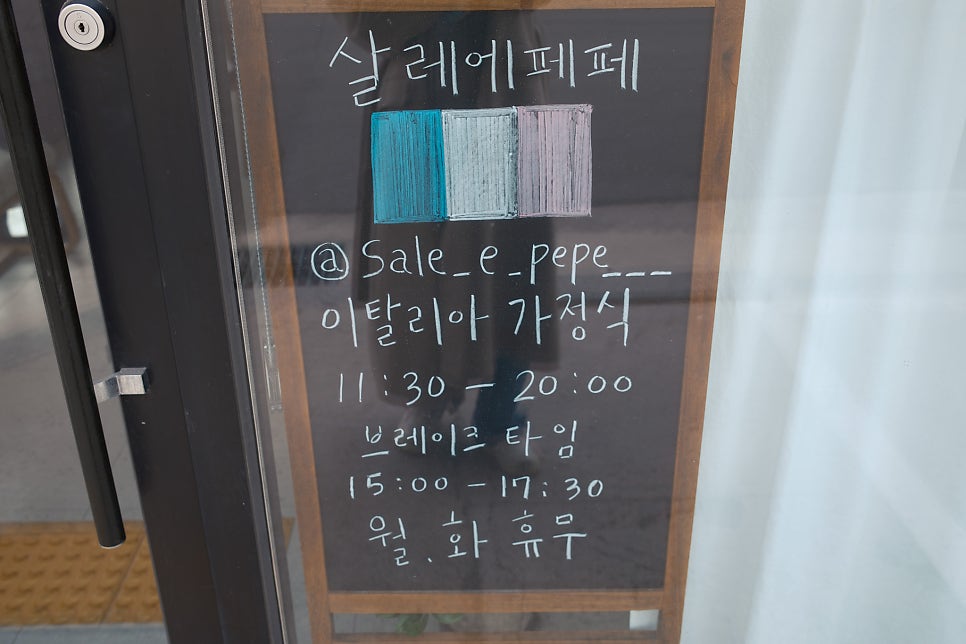 살레에페페
@sale_e_pepe___
이탈리아 가정식
11:30 - 20:00
브레이크 타임
15:00 - 17:30
월.화 휴무